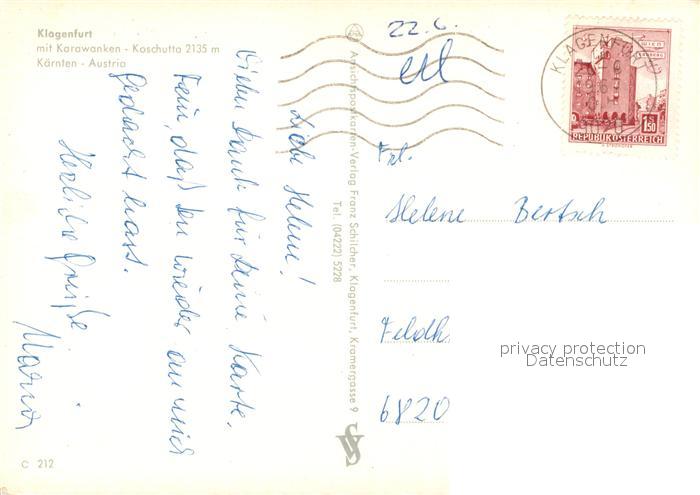 Klagenfurt
mit Karawanken - Koschutta 2135 m
Kärnten - Austria
Liebe Helene!
Vielen Dank für Deine Karte.
Fein, daß Du wieder an mich
gedacht hast.
Herzliche Grüße
Maria
C 212
Ansichtspostkarten-Verlag Franz Schilcher, Klagenfurt, Kramergasse 9
Tel. (04222) 5228
22. 6.
KLAGENFURT
WIEN
1.50
REPUBLIK ÖSTERREICH
Frl.
Helene Bertsch
Feldk.
6820
privacy protection
Datenschutz